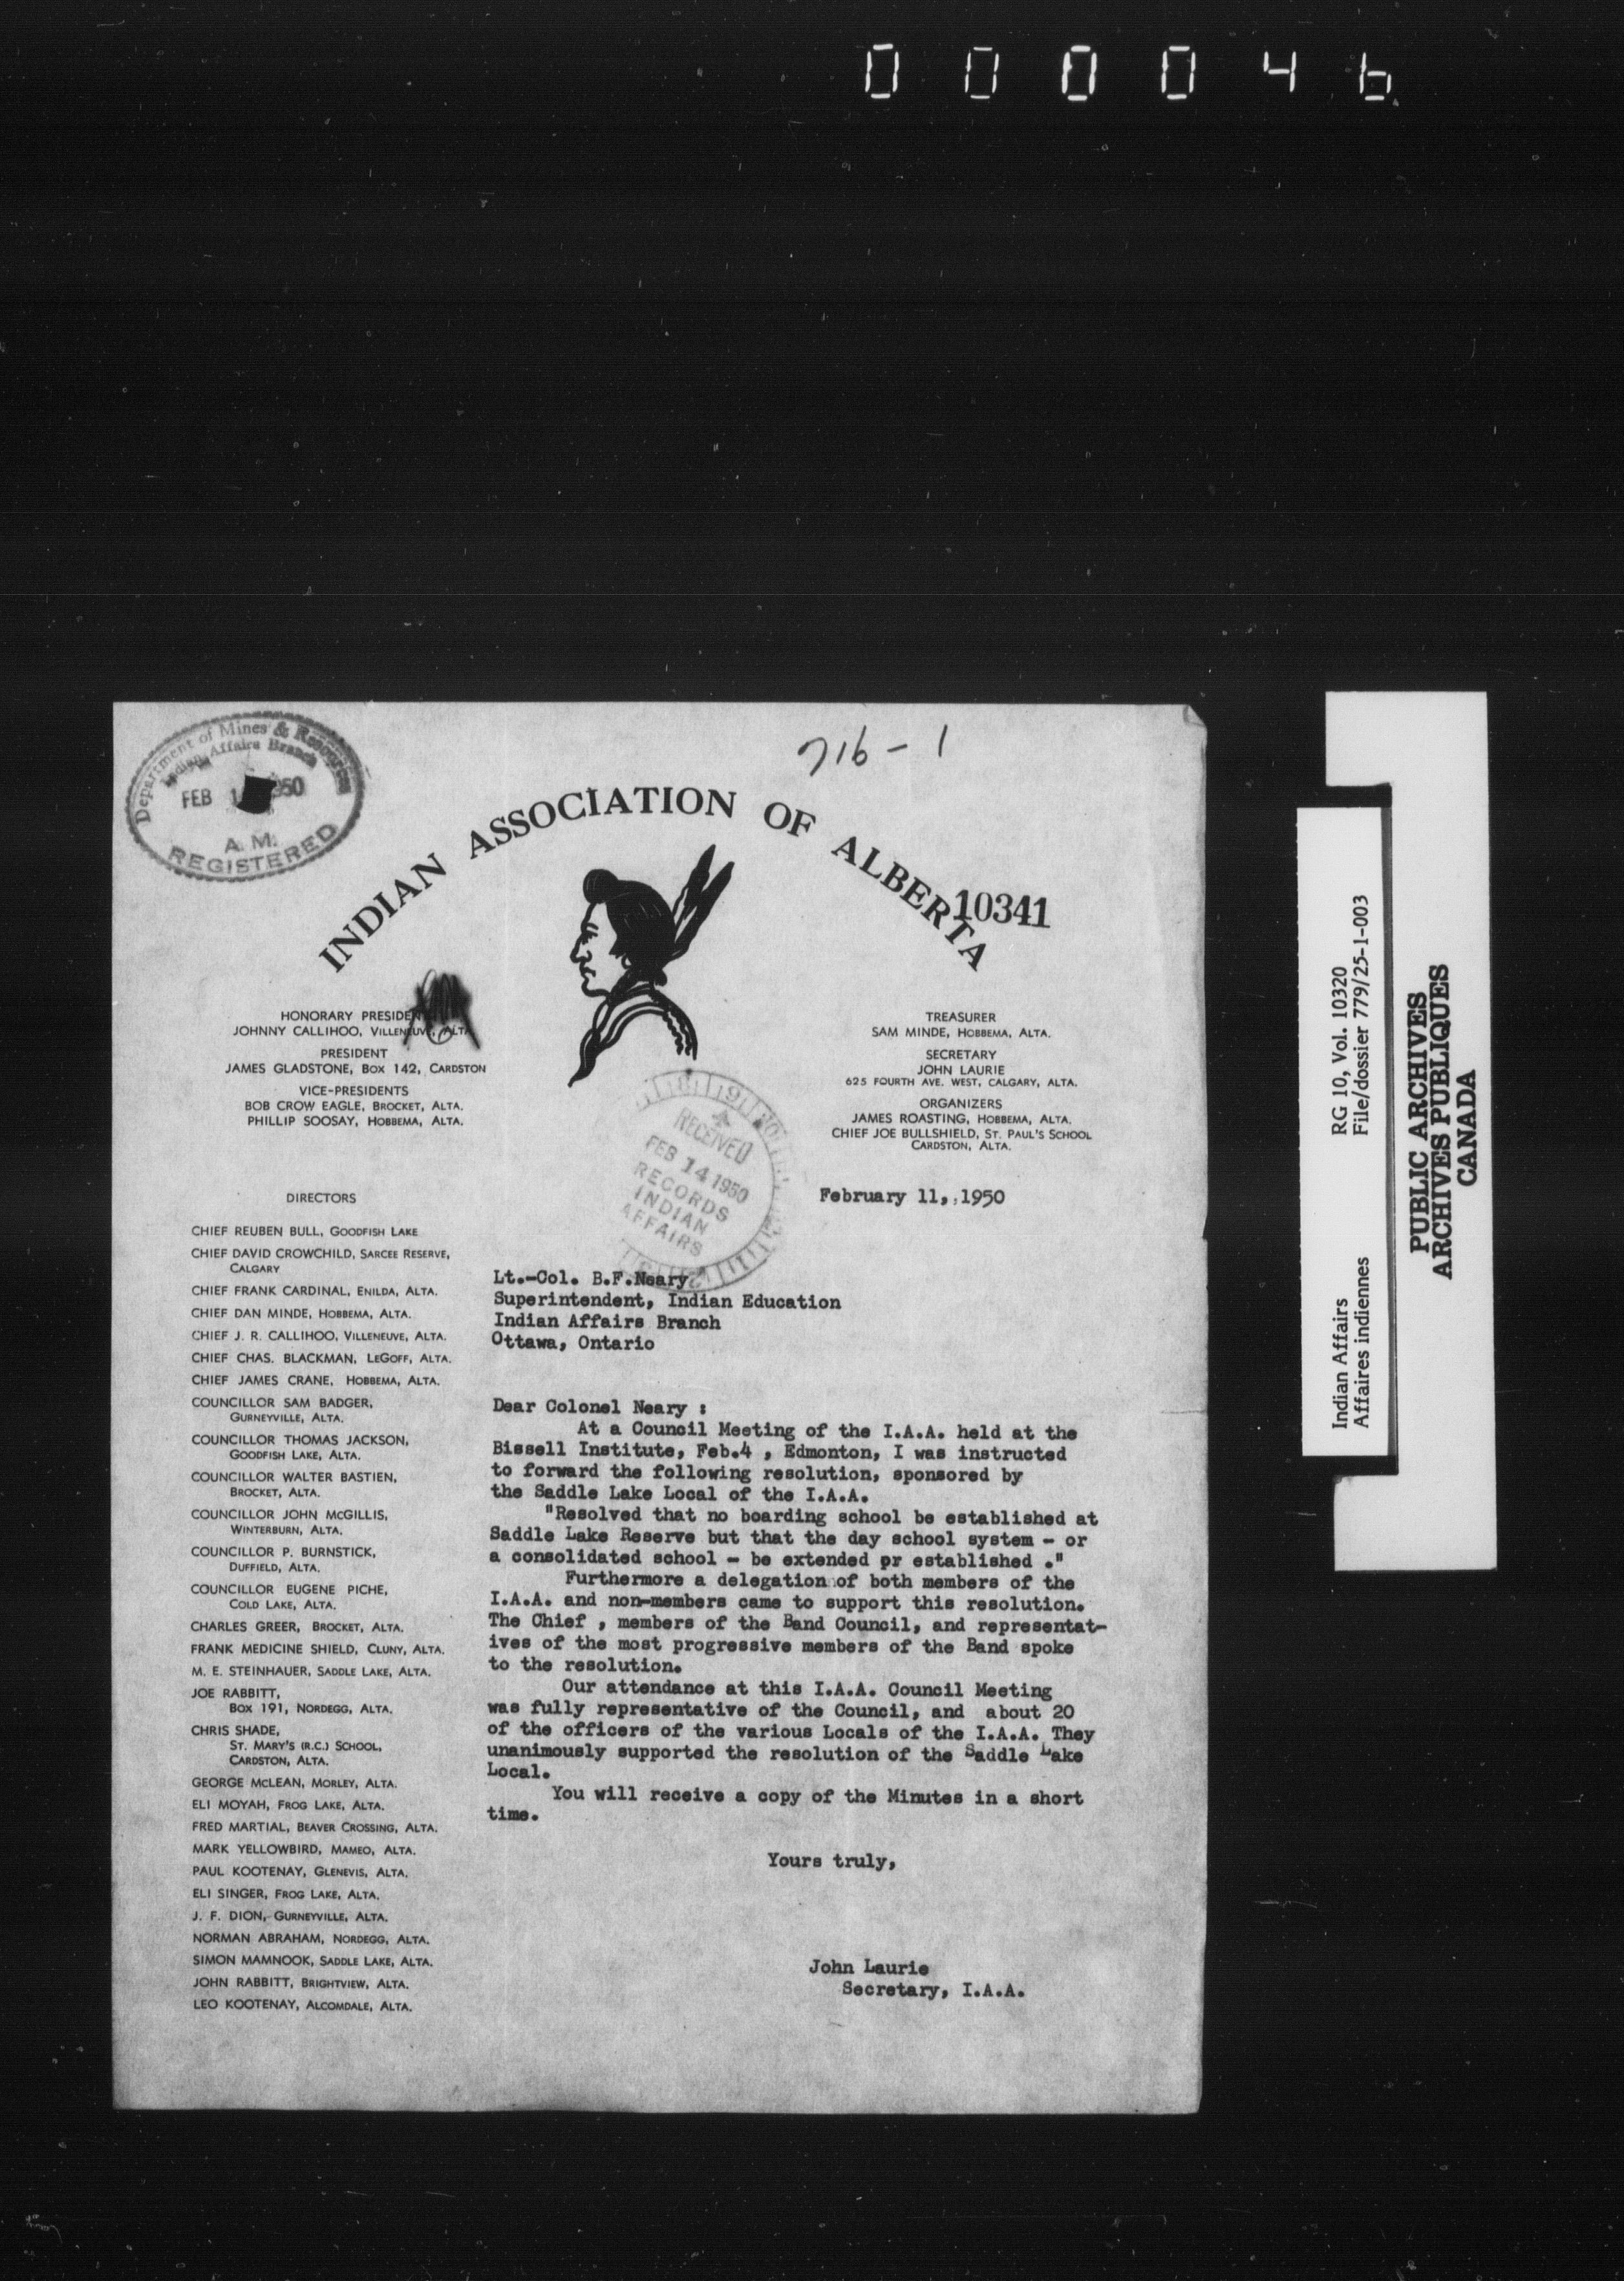 000046
Department of Mines & Resources
Indian Affairs Branch
FEB 1 1950
A. M.
REGISTERED
716-1
INDIAN ASSOCIATION OF ALBERTA
10341
HONORARY PRESIDENT
JOHNNY CALLIHOO, VILLENEUVE, ALTA.
PRESIDENT
JAMES GLADSTONE, BOX 142, CARDSTON
VICE-PRESIDENTS
BOB CROW EAGLE, BROCKET, ALTA.
PHILLIP SOOSAY, HOBBEMA, ALTA.
TREASURER
SAM MINDE, HOBBEMA, ALTA.
SECRETARY
JOHN LAURIE
625 FOURTH AVE. WEST, CALGARY, ALTA.
ORGANIZERS
JAMES ROASTING, HOBBEMA, ALTA.
CHIEF JOE BULLSHIELD, ST. PAUL'S SCHOOL
CARDSTON, ALTA.
RECEIVED
FEB 14 1950
RECORDS
INDIAN
AFFAIRS
February 11,,1950
DIRECTORS
CHIEF REUBEN BULL, GOODFISH LAKE
CHIEF DAVID CROWCHILD, SARCEE RESERVE,
CALGARY
CHIEF FRANK CARDINAL, ENILDA, ALTA.
CHIEF DAN MINDE, HOBBEMA, ALTA.
CHIEF J. R. CALLIHOO, VILLENEUVE, ALTA.
CHIEF CHAS. BLACKMAN, LEGOFF, ALTA.
CHIEF JAMES CRANE, HOBBEMA, ALTA.
COUNCILLOR SAM BADGER,
GURNEYVILLE, ALTA.
COUNCILLOR THOMAS JACKSON,
GOODFISH LAKE, ALTA.
COUNCILLOR WALTER BASTIEN,
BROCKET, ALTA.
COUNCILLOR JOHN McGILLIS,
WINTERBURN, ALTA.
COUNCILLOR P. BURNSTICK,
DUFFIELD, ALTA.
COUNCILLOR EUGENE PICHE,
COLD LAKE, ALTA.
CHARLES GREER, BROCKET, ALTA.
FRANK MEDICINE SHIELD, CLUNY, ALTA.
M. E. STEINHAUER, SADDLE LAKE, ALTA.
JOE RABBITT,
BOX 191, NORDEGG, ALTA.
CHRIS SHADE,
ST. MARY'S (R.C.) SCHOOL,
CARDSTON, ALTA.
GEORGE McLEAN, MORLEY, ALTA.
ELI MOYAH, FROG LAKE, ALTA.
FRED MARTIAL, BEAVER CROSSING, ALTA.
MARK YELLOWBIRD, MAMEO, ALTA.
PAUL KOOTENAY, GLENEVIS, ALTA.
ELI SINGER, FROG LAKE, ALTA.
J. F. DION, GURNEYVILLE, ALTA.
NORMAN ABRAHAM, NORDEGG, ALTA.
SIMON MAMNOOK, SADDLE LAKE, ALTA.
JOHN RABBITT, BRIGHTVIEW, ALTA.
LEO KOOTENAY, ALCOMDALE, ALTA.
Lt.-Col. B.F.Neary
Superintendent, Indian Education
Indian Affairs Branch
Ottawa, Ontario
Dear Colonel Neary :
At a Council Meeting of the I.A.A. held at the
Bissell Institute, Feb.4 , Edmonton, I was instructed
to forward the following resolution, sponsored by
the Saddle Lake Local of the I.A.A.
"Resolved that no boarding school be established at
Saddle Lake Reserve but that the day school system - or
a consolidated school - be extended pr established ."
Furthermore a delegation of both members of the
I.A.A. and non-members came to support this resolution.
The Chief , members of the Band Council, and representat-
ives of the most progressive members of the Band spoke
to the resolution.
Our attendance at this I.A.A. Council Meeting
was fully representative of the Council, and about 20
of the officers of the various Locals of the I.A.A. They
unanimously supported the resolution of the Saddle Lake
Local.
You will receive a copy of the Minutes in a short
time.
Yours truly,
John Laurie
Secretary, I.A.A.
Indian Affairs RG 10, Vol. 10320
Affaires indiennes File/dossier 779/25-1-003
PUBLIC ARCHIVES
ARCHIVES PUBLIQUES
CANADA